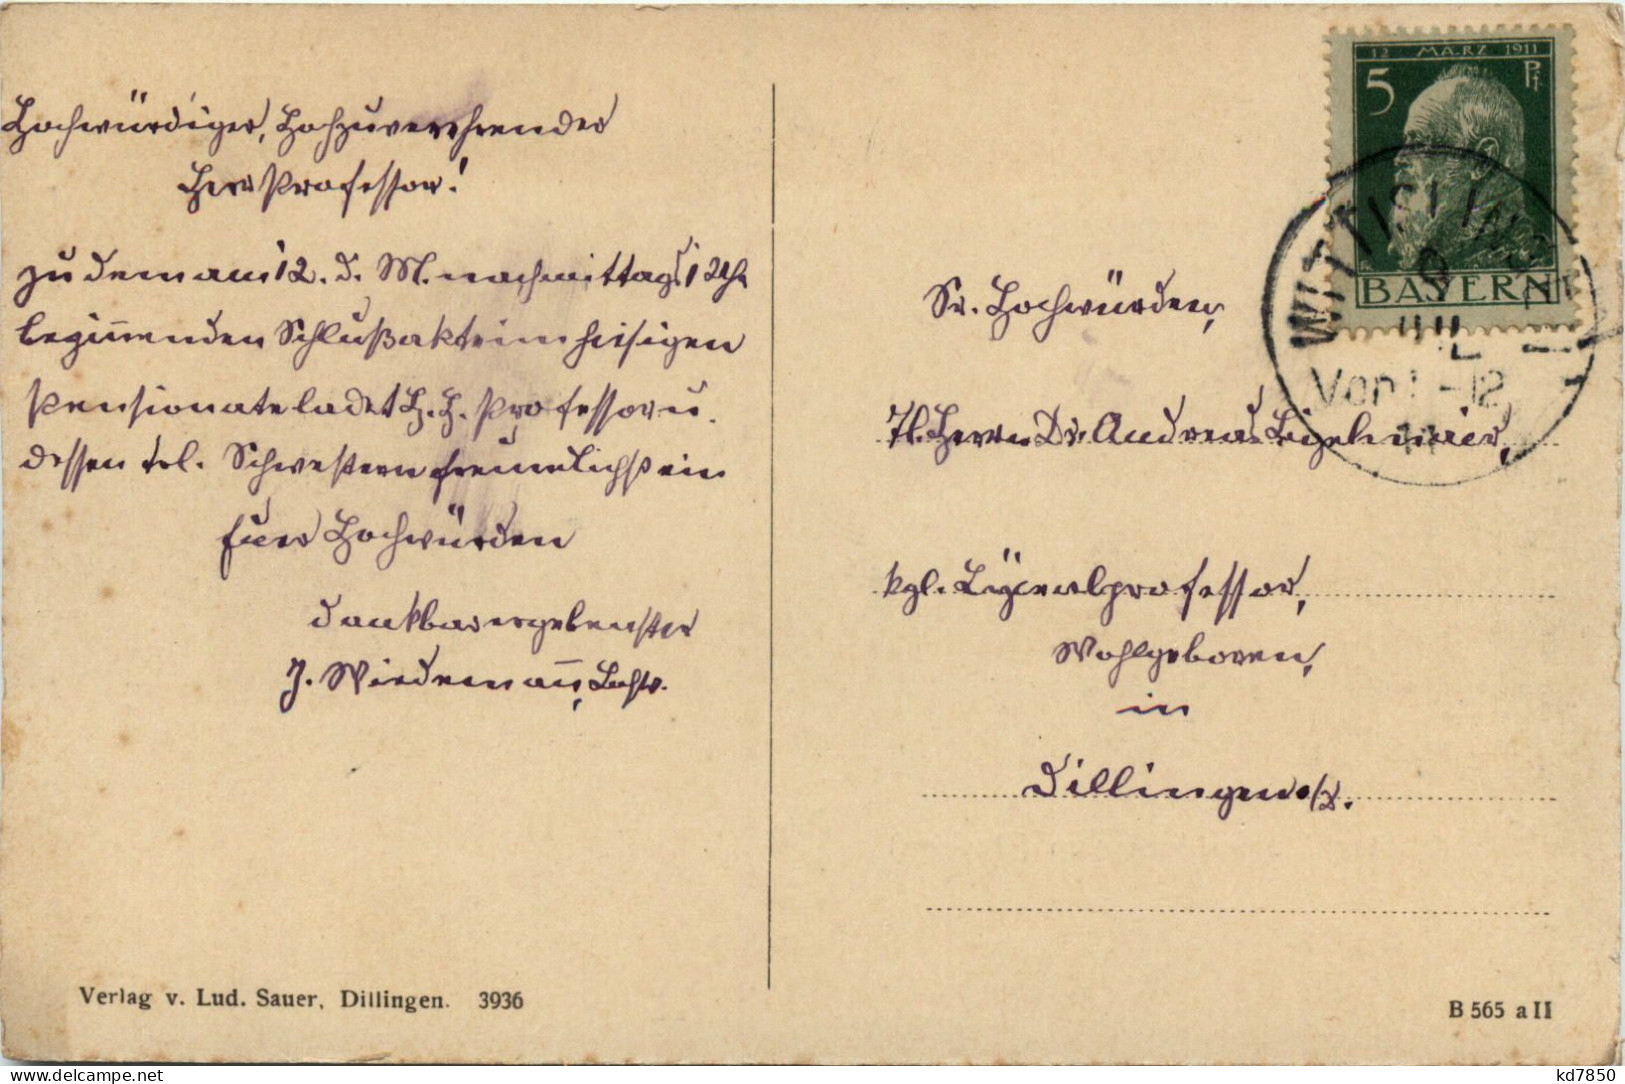 Hochwürdiger, Hochzuverehrender
Herr Professor!
Zu dem am 12. d. M. nachmittags 1 Uhr
beginnenden Schlußakte im hiesigen
Pensionate ladet H. H. Professor u.
dessen frl. Schwestern freundlichst ein
Euer Hochwürden
dankbar ergebenster
J. Wiedemann,
Verlag v. Lud. Sauer, Dillingen. 3936
12 MÄRZ 1911
5 Pf
BAYERN
WITTISLINGEN
9
JUL
Vor -12
Sr. Hochwürden,
Herrn Dr. Andreas Bigelmair,
kgl. Lycealprofessor,
Wohlgeboren,
in
Dillingen a/D.
B 565 a II
kd7850